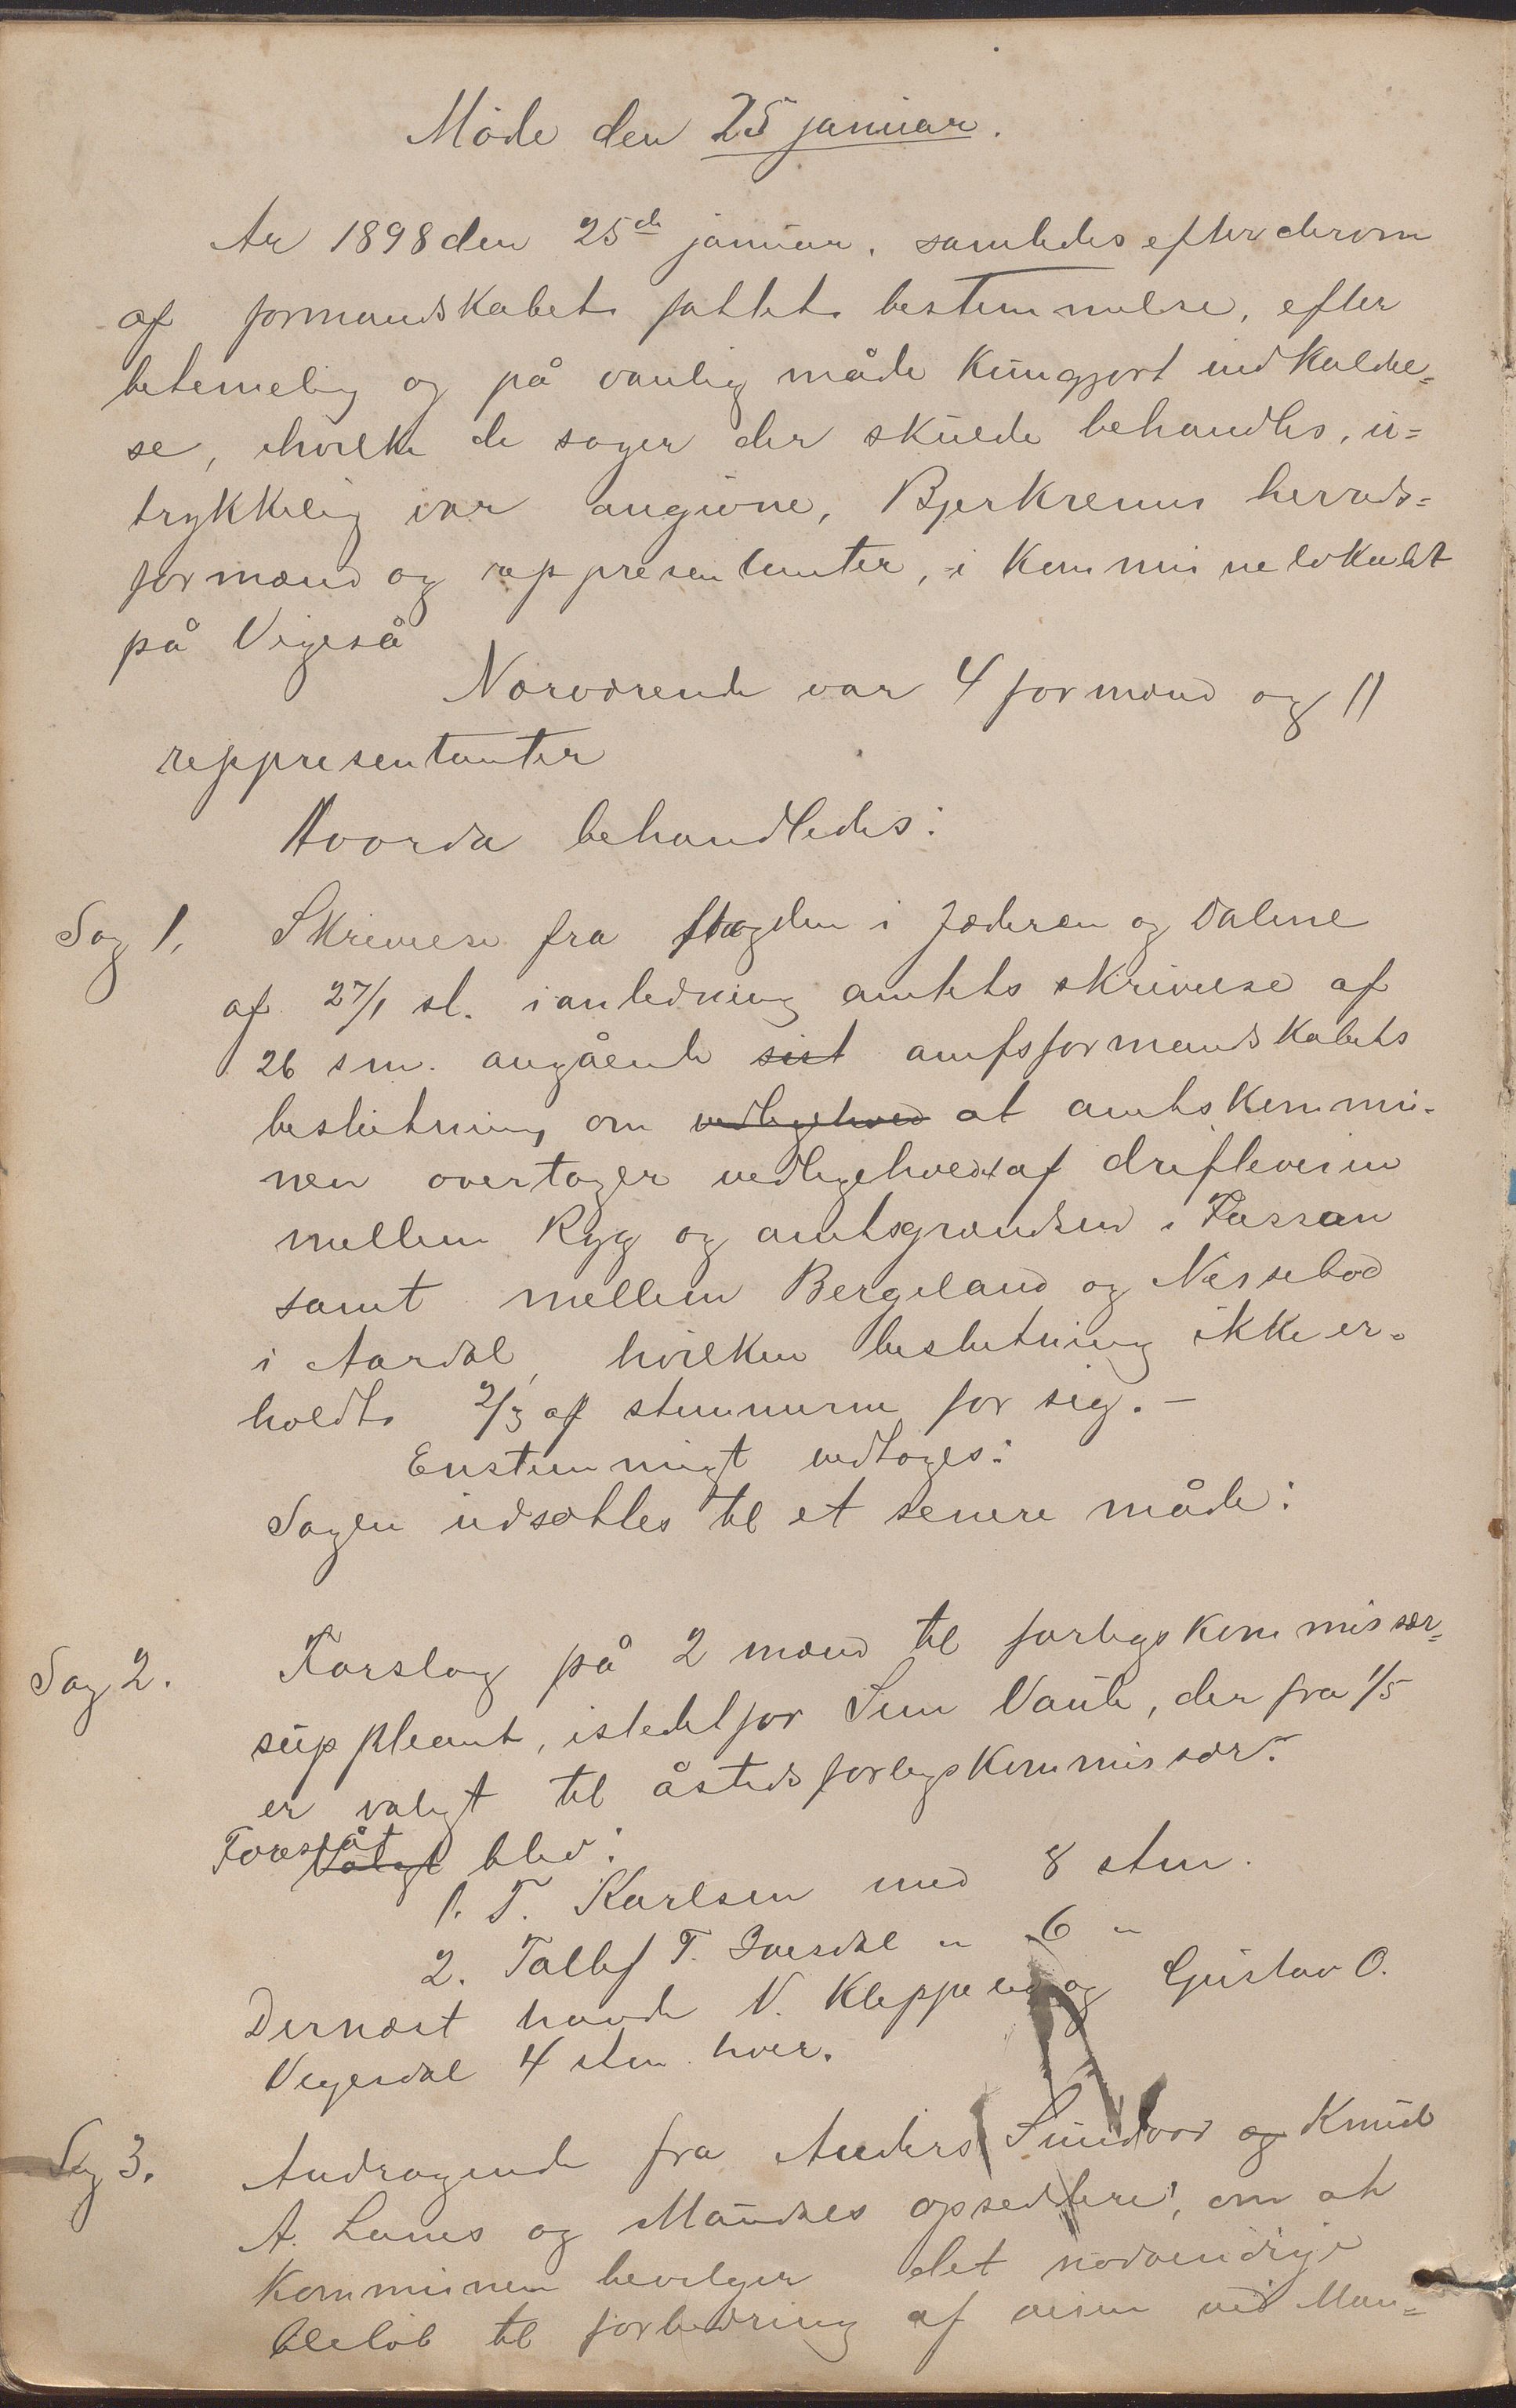 Møde den 25 januar.
År 1898 den 25de januar, samledes efter derom
af formandskabet fattet bestemmelse, efter
betimelig og på vanlig måde kungjort indkaldel=
se, ihvilke de sager der skulde behandles, u=
trykkelig var angivne, Bjerkrems herreds=
formænd og reppresentanter, i kommunelokalet
på Vigeså
Nærværende var 4 formænd og 11
reppresentanter
Hvorda behandledes:
Sag 1, Skrivelse fra fogden i Jæderen og Dalene
af 27/1 sl. i anledning amtets skrivelse af
26 s m. angående sist amtsformandskabets
beslutning om vedligehold at amtskommu-
nen overtager vedligeholdet af drifteveien
mellem Ryg og amtsgrændsen i Fassan
samt mellem Bergeland og Nessebø
i Aardal, hvilken beslutning ikke er-
holdt 2/3 af stemmerne for sig. -
Enstemmigt vedtoges:
Sagen udsættes til et senere måde:
Sag 2. Forslag på 2 mænd til forligskommissær=
suppleant, istedetfor Sem Vaule, der fra 1/5
er valgt til åstedsforligskommissær.
Foreslåt Valgt blev:
1. T. Karlsen med 8 stm.
2. Tallef T. Ivesdal " 6 "
Dernæst havde N. Kleppelid og Gustav O.
Vegesdal 4 stm hver.
Sag 3. Andragende fra Anders Sundvor og Knud
A. Lunes og Maudals opsiddere, om at
Kommunen bevilger det nødvendige
beløb til forbedring af veien ved Mau=